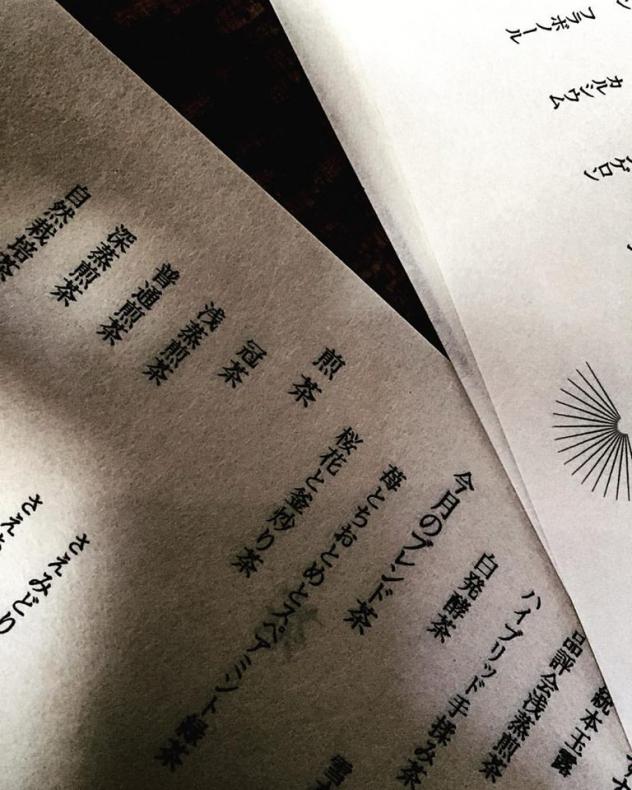 フラボノール
カルシウム
統本玉露
品評会浅蒸煎茶
ハイブリッド 手揉み茶
白発酵茶
今月のブレンド茶
苺とちおとめとスペアミント緑茶
桜花と釜炒り茶
煎茶
冠茶
浅蒸煎茶
普通煎茶
深蒸煎茶
自然栽培茶
さえみどり